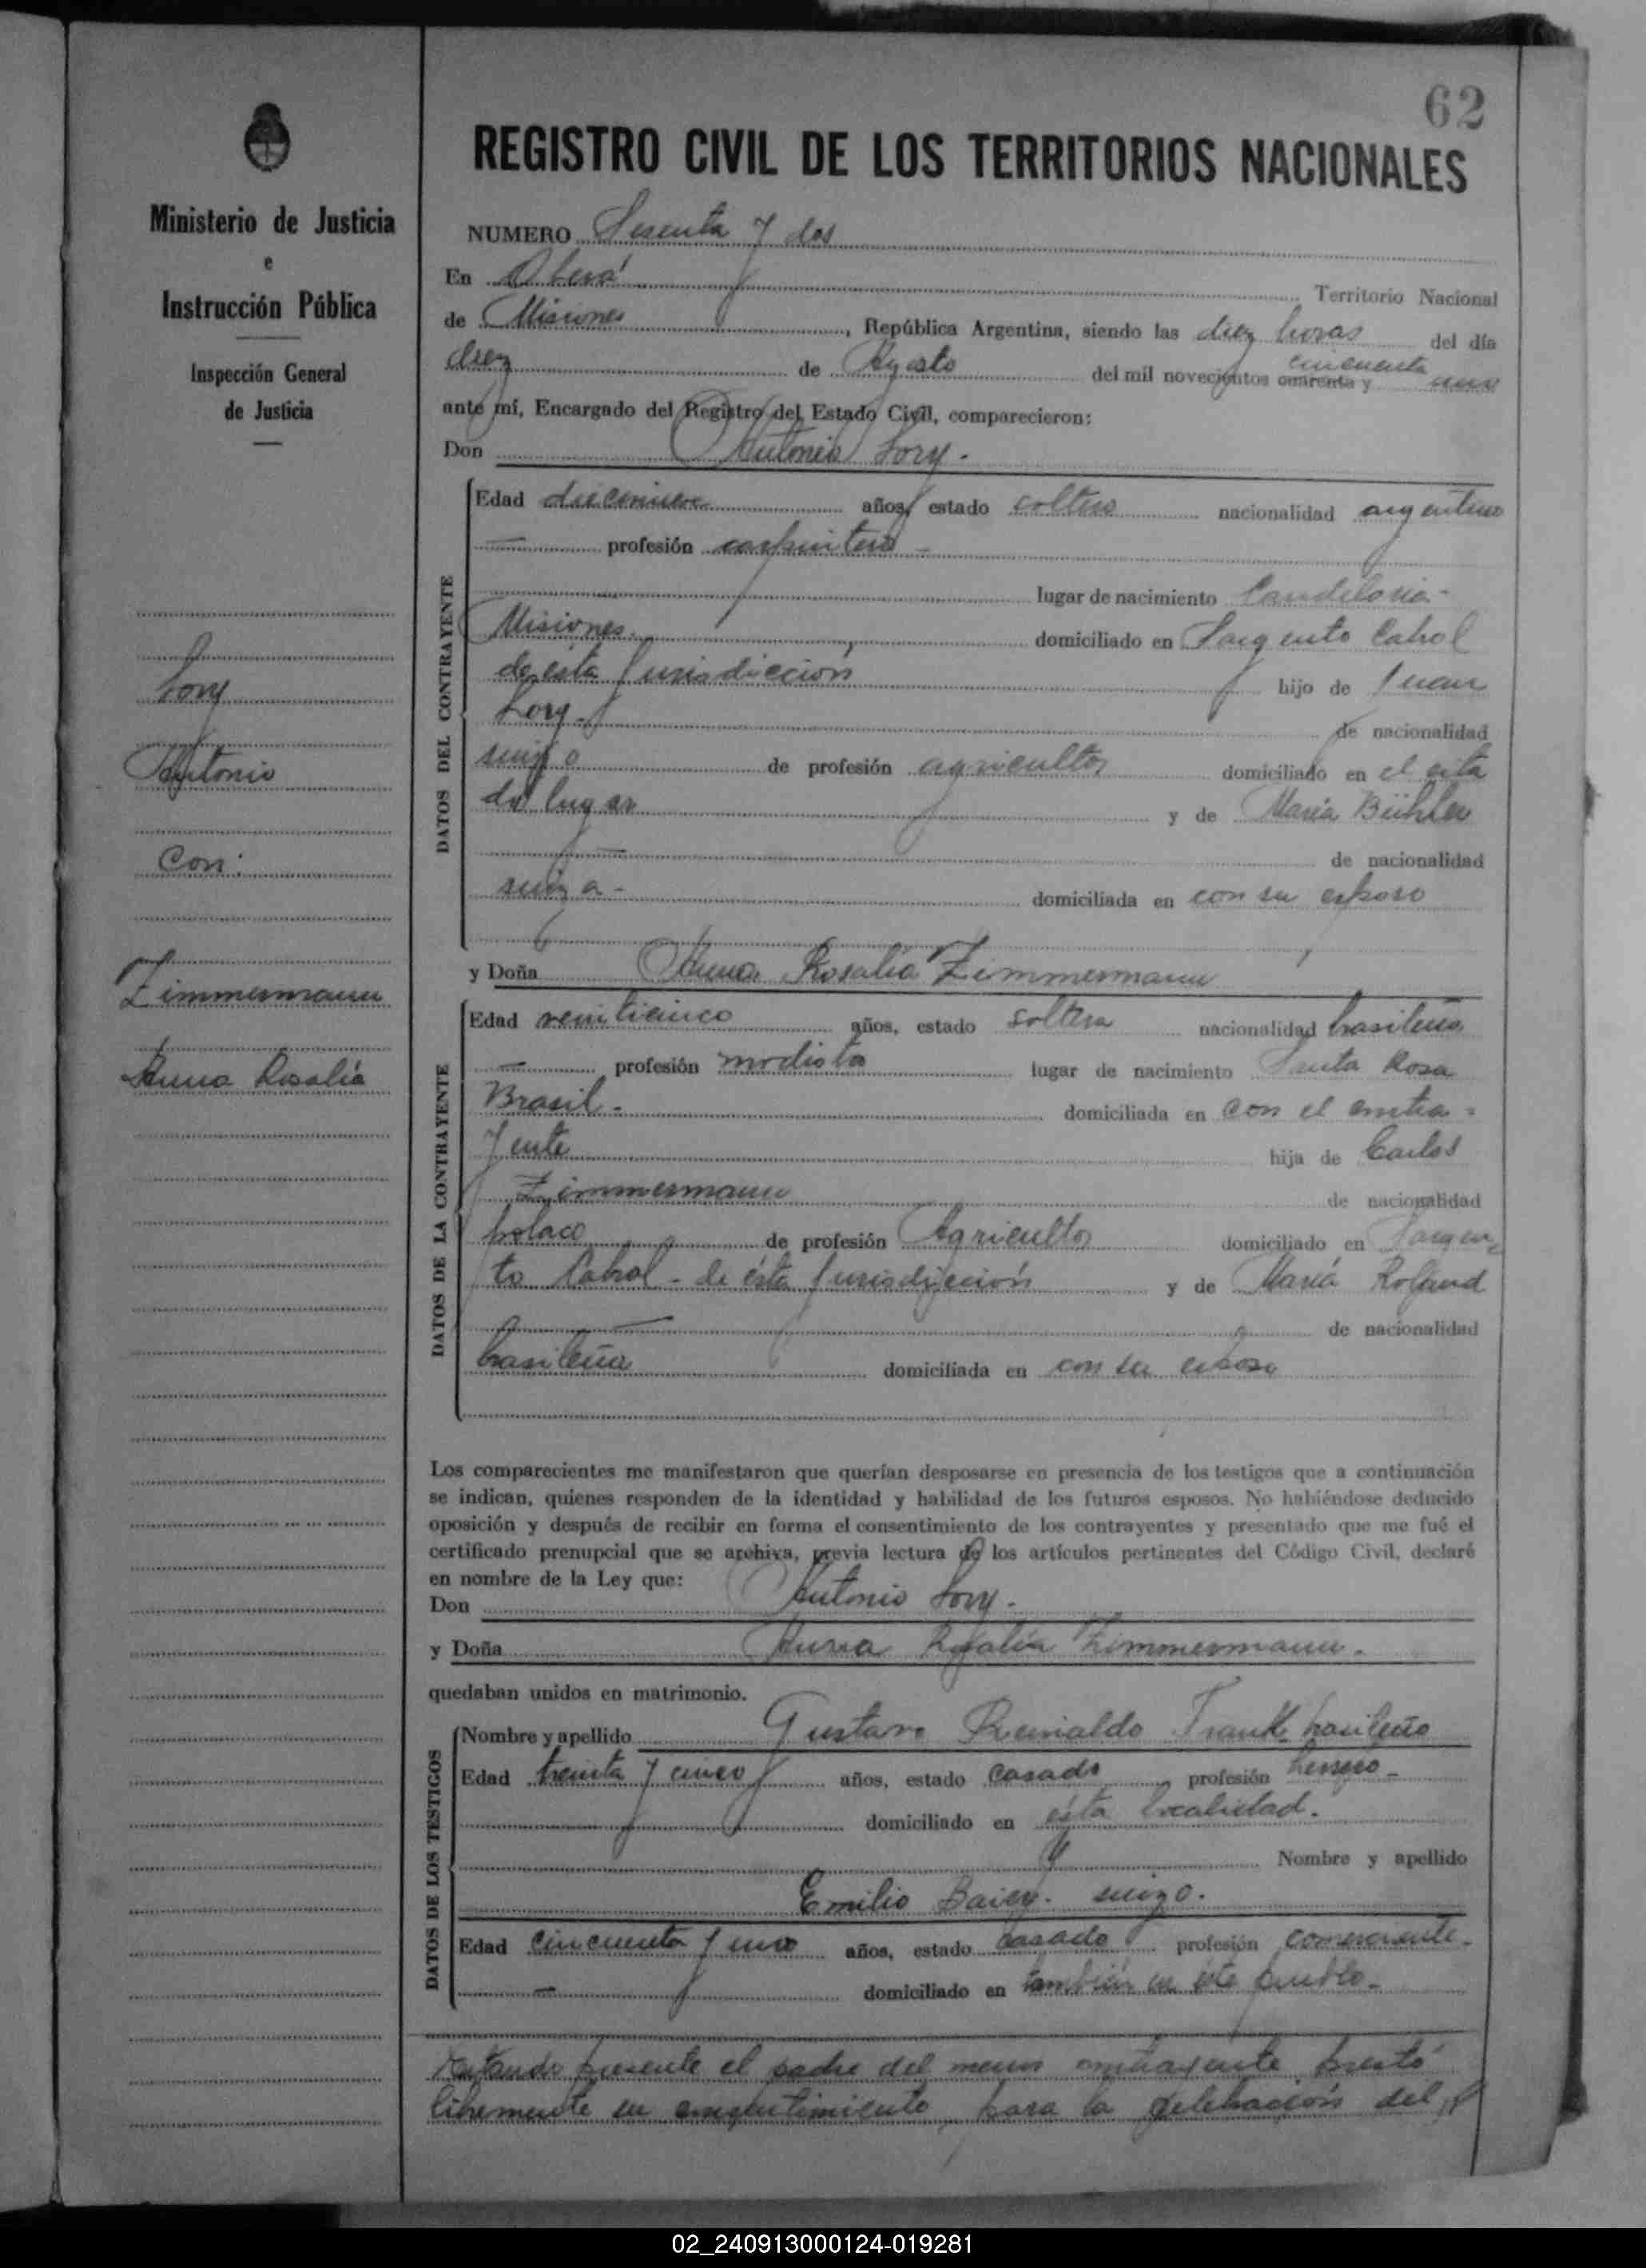 62
REGISTRO CIVIL DE LOS TERRITORIOS NACIONALES
Ministerio de Justicia
e
Instrucción Pública
Inspección General
de Justicia
Lory
Antonio
Con:
Zimmermann
Anna Rosalía
NUMERO Sesenta y dos
En Oberá Territorio Nacional
de Misiones, República Argentina, siendo las diez horas del día
diez de Agosto del mil novecientos cuarenta y cincuenta uno
ante mí, Encargado del Registro del Estado Civil, comparecieron:
Don Antonio Lory.
DATOS DEL CONTRAYENTE
Edad diecinueve años, estado soltero nacionalidad argentino
— profesión carpintero -
lugar de nacimiento Candelaria-
Misiones domiciliado en Sargento Cabral
de esta Jurisdicción hijo de Juan
Lory.- de nacionalidad
suizo de profesión agricultor domiciliado en el cita
do lugar y de María Bühler
— de nacionalidad
suiza- domiciliada en con su esposo
y Doña Anna Rosalía Zimmermann
DATOS DE LA CONTRAYENTE
Edad veinticinco años, estado soltera nacionalidad brasileña
— profesión modista lugar de nacimiento Santa Rosa
Brasil.- domiciliada en con el contra-
yente hija de Carlos
Zimmermann de nacionalidad
polaco de profesión Agricultor domiciliado en Sargen
to Cabral - de ésta Jurisdicción y de María Roland
— de nacionalidad
brasileña domiciliada en con su esposo
Los comparecientes me manifestaron que querían desposarse en presencia de los testigos que a continuación
se indican, quienes responden de la identidad y habilidad de los futuros esposos. No habiéndose deducido
oposición y después de recibir en forma el consentimiento de los contrayentes y presentado que me fué el
certificado prenupcial que se archiva, previa lectura de los artículos pertinentes del Código Civil, declaré
en nombre de la Ley que:
Don Antonio Lory.-
y Doña Anna Rosalía Zimmermann.
quedaban unidos en matrimonio.
DATOS DE LOS TESTIGOS
Nombre y apellido Gustavo Reinaldo Frank brasileño
Edad treinta y cinco años, estado casado profesión herrero-
domiciliado en ésta localidad.
Nombre y apellido
Emilio suizo.
Edad cincuenta y uno años, estado casado profesión comerciante.
— domiciliado en también en éste pueblo.-
Estando presente el padre del menor contrayente prestó
libremente su consentimiento para la celebración del
02_240913000124-019281